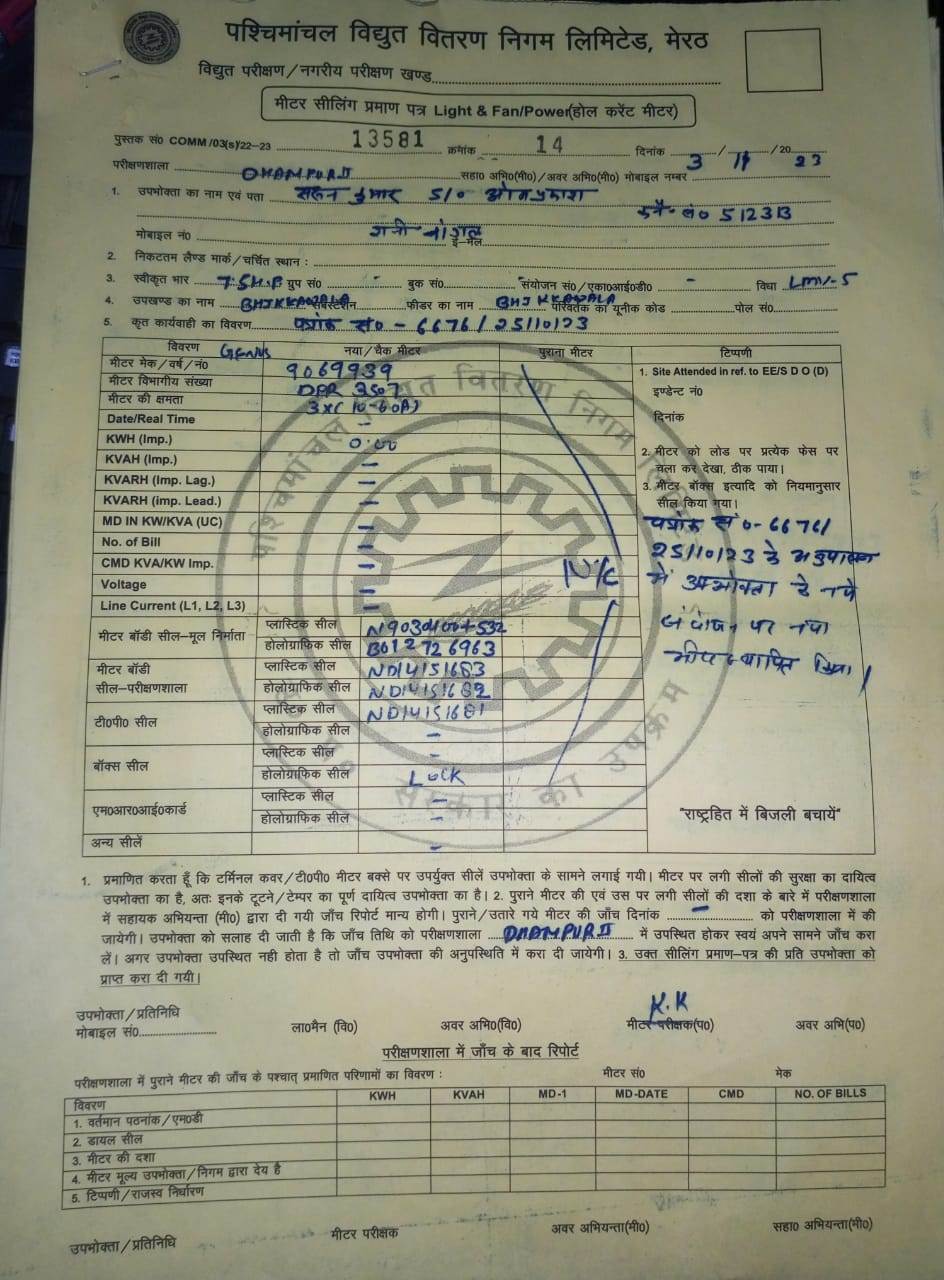 पश्चिमांचल विद्युत वितरण निगम लिमिटेड, मेरठ
विद्युत परीक्षण/नगरीय परीक्षण खण्ड
मीटर सीलिंग प्रमाण पत्र Light & Fan/Power(होल करेंट मीटर)
पुस्तक सं0 COMM/03(s)/22-23 13581 क्रमांक 14 दिनांक 3/11/2023
परीक्षणशाला DHAMPUR II सहा0 अभि0(मी0)/अवर अभि0(मी0) मोबाइल नम्बर
1. उपभोक्ता का नाम एवं पता कुमार S/0 ओमप्रकाश
512313
मोबाइल नं0 ई-मेल
2. निकटतम लैण्ड मार्क/चर्चित स्थान :
3. स्वीकृत भार 7.5 H.P ग्रुप सं0 - बुक सं0 संयोजन सं0/एका0आई0डी0 - विधा LMV-5
4. उपखण्ड का नाम BHIKKAWALA सबस्टेशन फीडर का नाम BHIKKAWALA परिवर्तक का यूनीक कोड पोल सं0
5. कृत कार्यवाही का विवरण पत्रांक सं0 - 6676/25/10/23
विवरण Genus नया/चैक मीटर पुराना मीटर टिप्पणी
मीटर मेक/वर्ष/नं0 9069939
मीटर विभागीय संख्या DPR 3507
मीटर की क्षमता 3x(10-60A)
Date/Real Time -
KWH (Imp.) 0.00
KVAH (Imp.) -
KVARH (Imp. Lag.) -
KVARH (imp. Lead.) -
MD IN KW/KVA (UC) -
No. of Bill -
CMD KVA/KW Imp. -
Voltage -
Line Current (L1, L2, L3) -
N/C
1. Site Attended in ref. to EE/S D O (D)
इण्डेन्ट नं0
दिनांक
2. मीटर को लोड पर प्रत्येक फेस पर
चला कर देखा, ठीक पाया।
3. मीटर बॉक्स इत्यादि को नियमानुसार
सील किया गया।
पत्रांक सं0-6676/
25/10/23 के अनुपालन
में उपभोक्ता के नये
संयोजन पर नया
मीटर स्थापित किया।
मीटर बॉडी सील-मूल निर्माता प्लास्टिक सील
होलोग्राफिक सील B012726963
मीटर बॉडी
सील-परीक्षणशाला
प्लास्टिक सील ND14151683
होलोग्राफिक सील ND14151682
टी0पी0 सील प्लास्टिक सील ND14151681
होलोग्राफिक सील -
बॉक्स सील प्लास्टिक सील -
होलोग्राफिक सील LOCK
एम0आर0आई0कार्ड प्लास्टिक सील -
होलोग्राफिक सील -
अन्य सीलें -
"राष्ट्रहित में बिजली बचायें"
पश्चिमांचल विद्युत वितरण निगम लि0
उ0 प्र0 सरकार का उपक्रम
1. प्रमाणित करता हूँ कि टर्मिनल कवर/टी0पी0 मीटर बक्से पर उपर्युक्त सीलें उपभोक्ता के सामने लगाई गयी। मीटर पर लगी सीलों की सुरक्षा का दायित्व
उपभोक्ता का है, अतः इनके टूटने/टेम्पर का पूर्ण दायित्व उपभोक्ता का है। 2. पुराने मीटर की एवं उस पर लगी सीलों की दशा के बारे में परीक्षणशाला
में सहायक अभियन्ता (मी0) द्वारा दी गयी जाँच रिपोर्ट मान्य होगी। पुराने/उतारे गये मीटर की जाँच दिनांक - को परीक्षणशाला में की
जायेगी। उपभोक्ता को सलाह दी जाती है कि जाँच तिथि को परीक्षणशाला DHAMPUR II में उपस्थित होकर स्वयं अपने सामने जाँच करा
लें। अगर उपभोक्ता उपस्थित नही होता है तो जाँच उपभोक्ता की अनुपस्थिति में करा दी जायेगी। 3. उक्त सीलिंग प्रमाण-पत्र की प्रति उपभोक्ता को
प्राप्त करा दी गयी।
K.K
उपभोक्ता/प्रतिनिधि
मोबाइल सं0 ला0मैन (वि0) अवर अभि0(वि0) मीटर परीक्षक(प0) अवर अभि(प0)
परीक्षणशाला में जाँच के बाद रिपोर्ट
परीक्षणशाला में पुराने मीटर की जाँच के पश्चात् प्रमाणित परिणामों का विवरण : मीटर सं0 मेक
विवरण KWH KVAH MD-1 MD-DATE CMD NO. OF BILLS
1. वर्तमान पठनांक/एम0डी
2. डायल सील
3. मीटर की दशा
4. मीटर मूल्य उपभोक्ता/निगम द्वारा देय है
5. टिप्पणी/राजस्व निर्धारण
उपभोक्ता/प्रतिनिधि मीटर परीक्षक अवर अभियन्ता(मी0) सहा0 अभियन्ता(मी0)